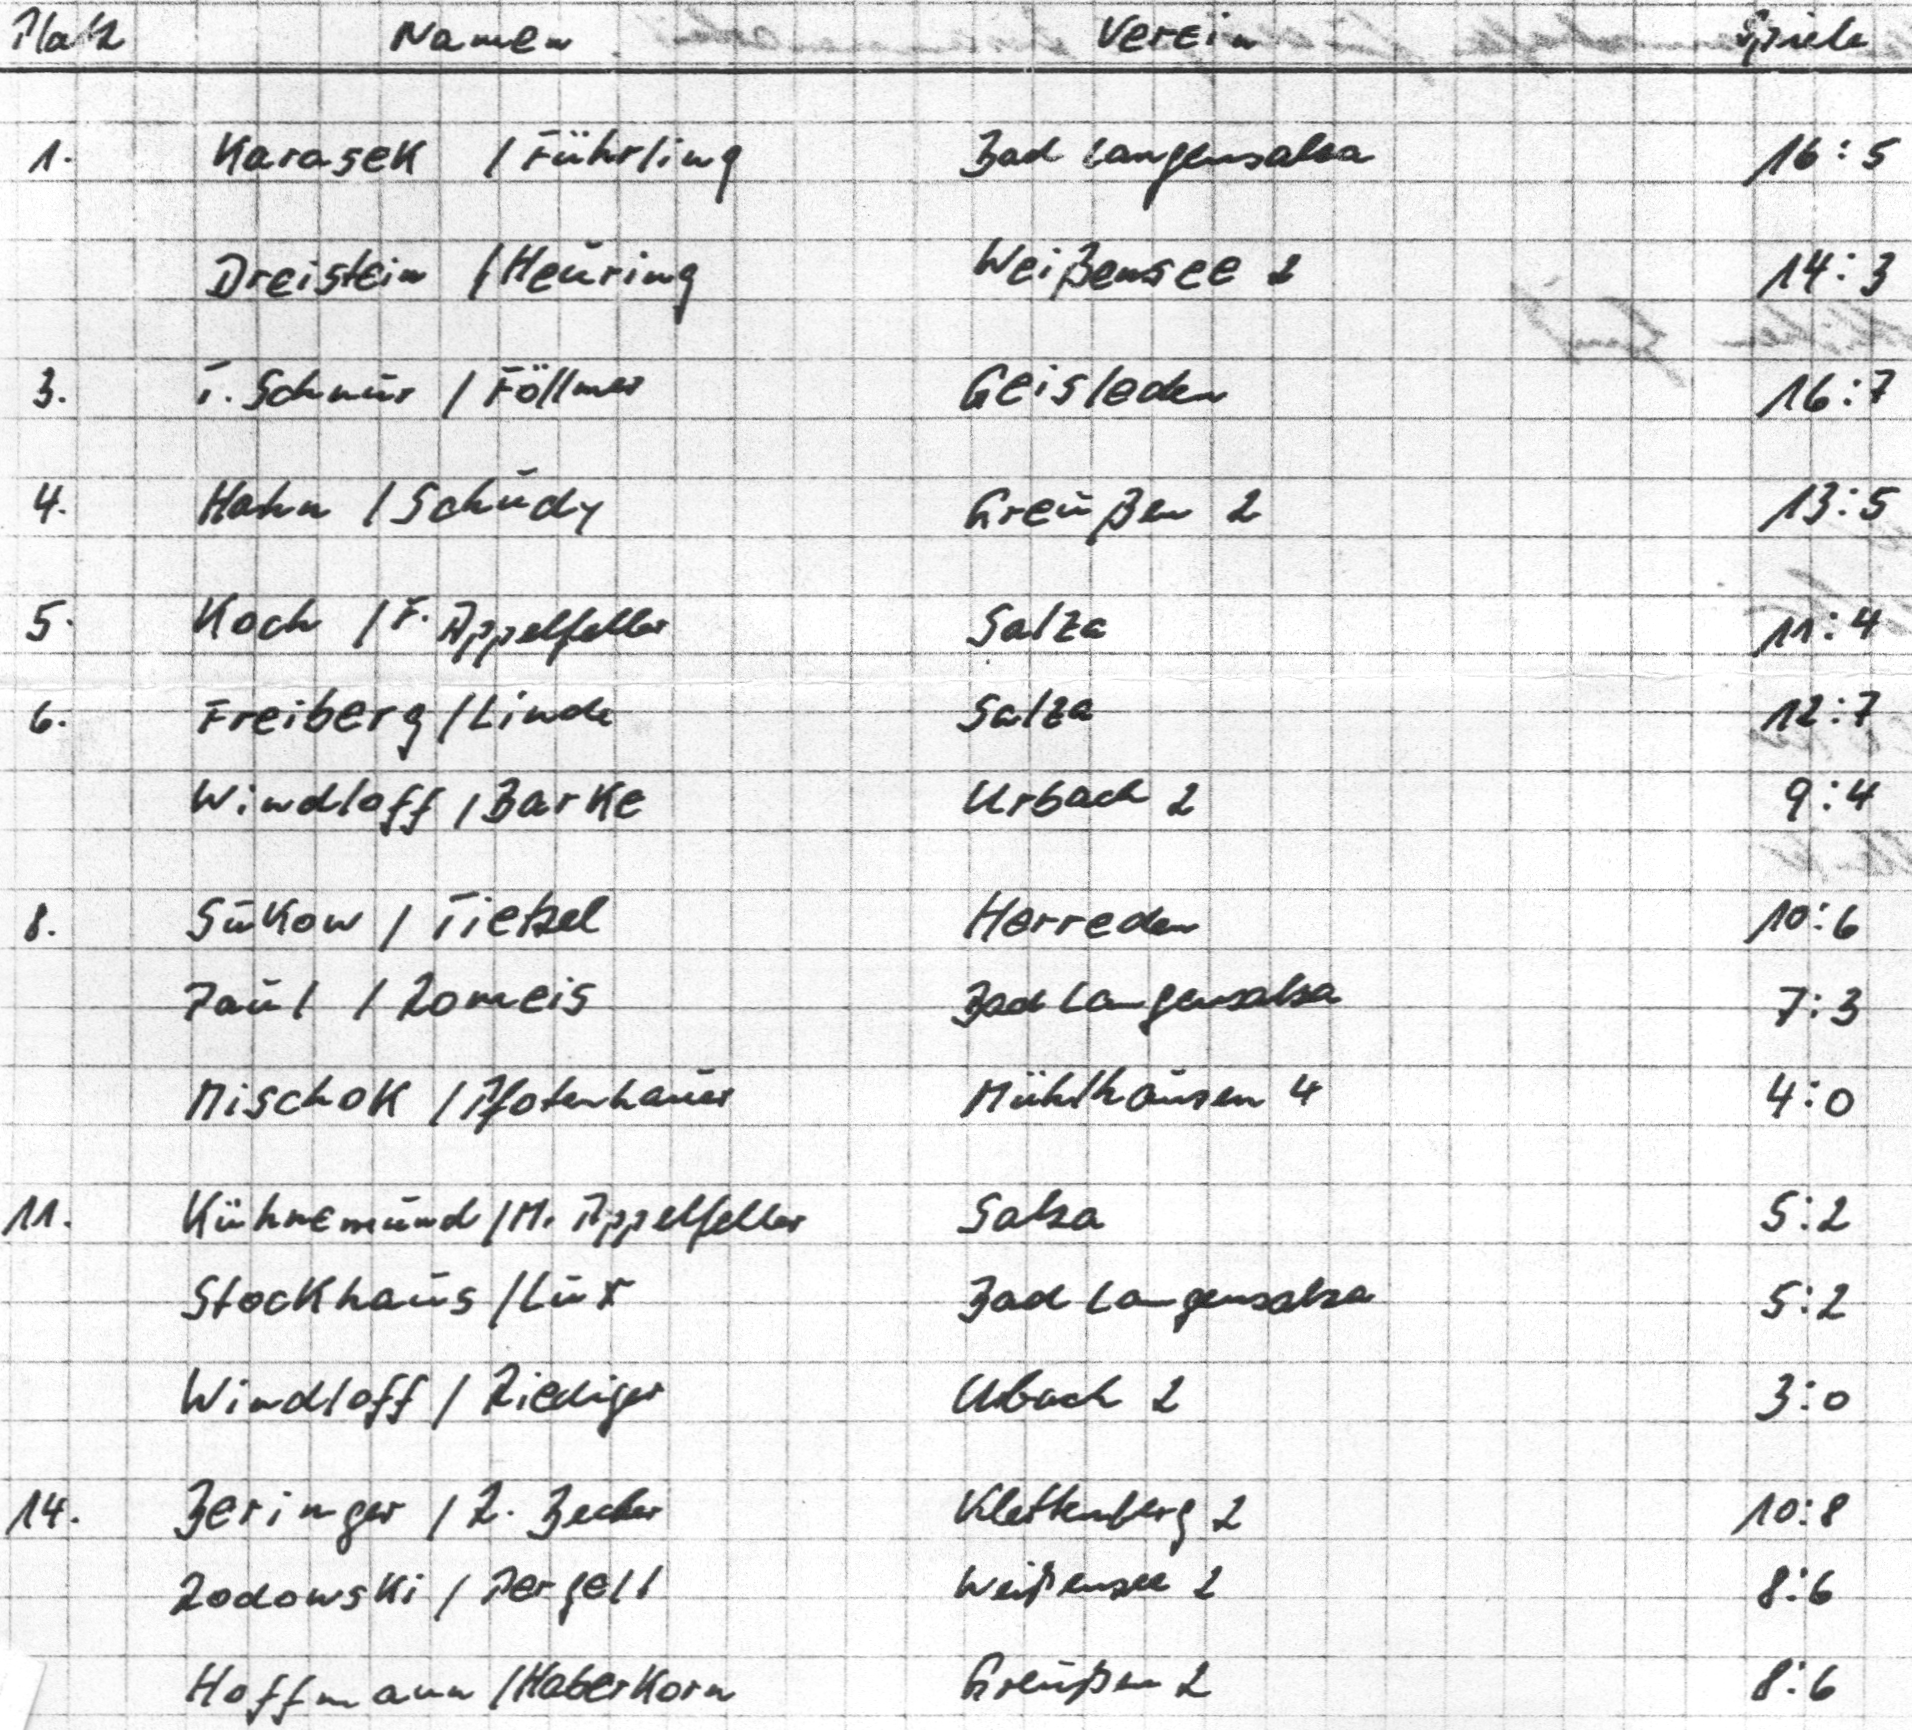 Platz Namen Verein Spiele
1. Karasek / Führling Bad Langensalza 16:5
Dreistein / Heuring Weißensee 2 14:3
3. T. Schnur / Föllmer Geisleden 16:7
4. Hahn / Schudy Greußen 2 13:5
5. Koch / F. Appelfeller Salza 11:4
6. Freiberg / Linde Salza 12:7
Windloff / Barke Urbach 2 9:4
8. Sukow / Tietzel Herreden 10:6
Paul / Romeis Bad Langensalza 7:3
Mischok / Pfotenhauer Mühlhausen 4 4:0
11. Kühnemund / M. Appelfeller Salza 5:2
Stockhaus / Lux Bad Langensalza 5:2
Windloff / Riediger Urbach 2 3:0
14. Beringer / R. Becker Klettenberg 2 10:8
Rodowski / Pergelt Weißensee 2 8:6
Hoffmann / Haberkorn Greußen 2 8:6